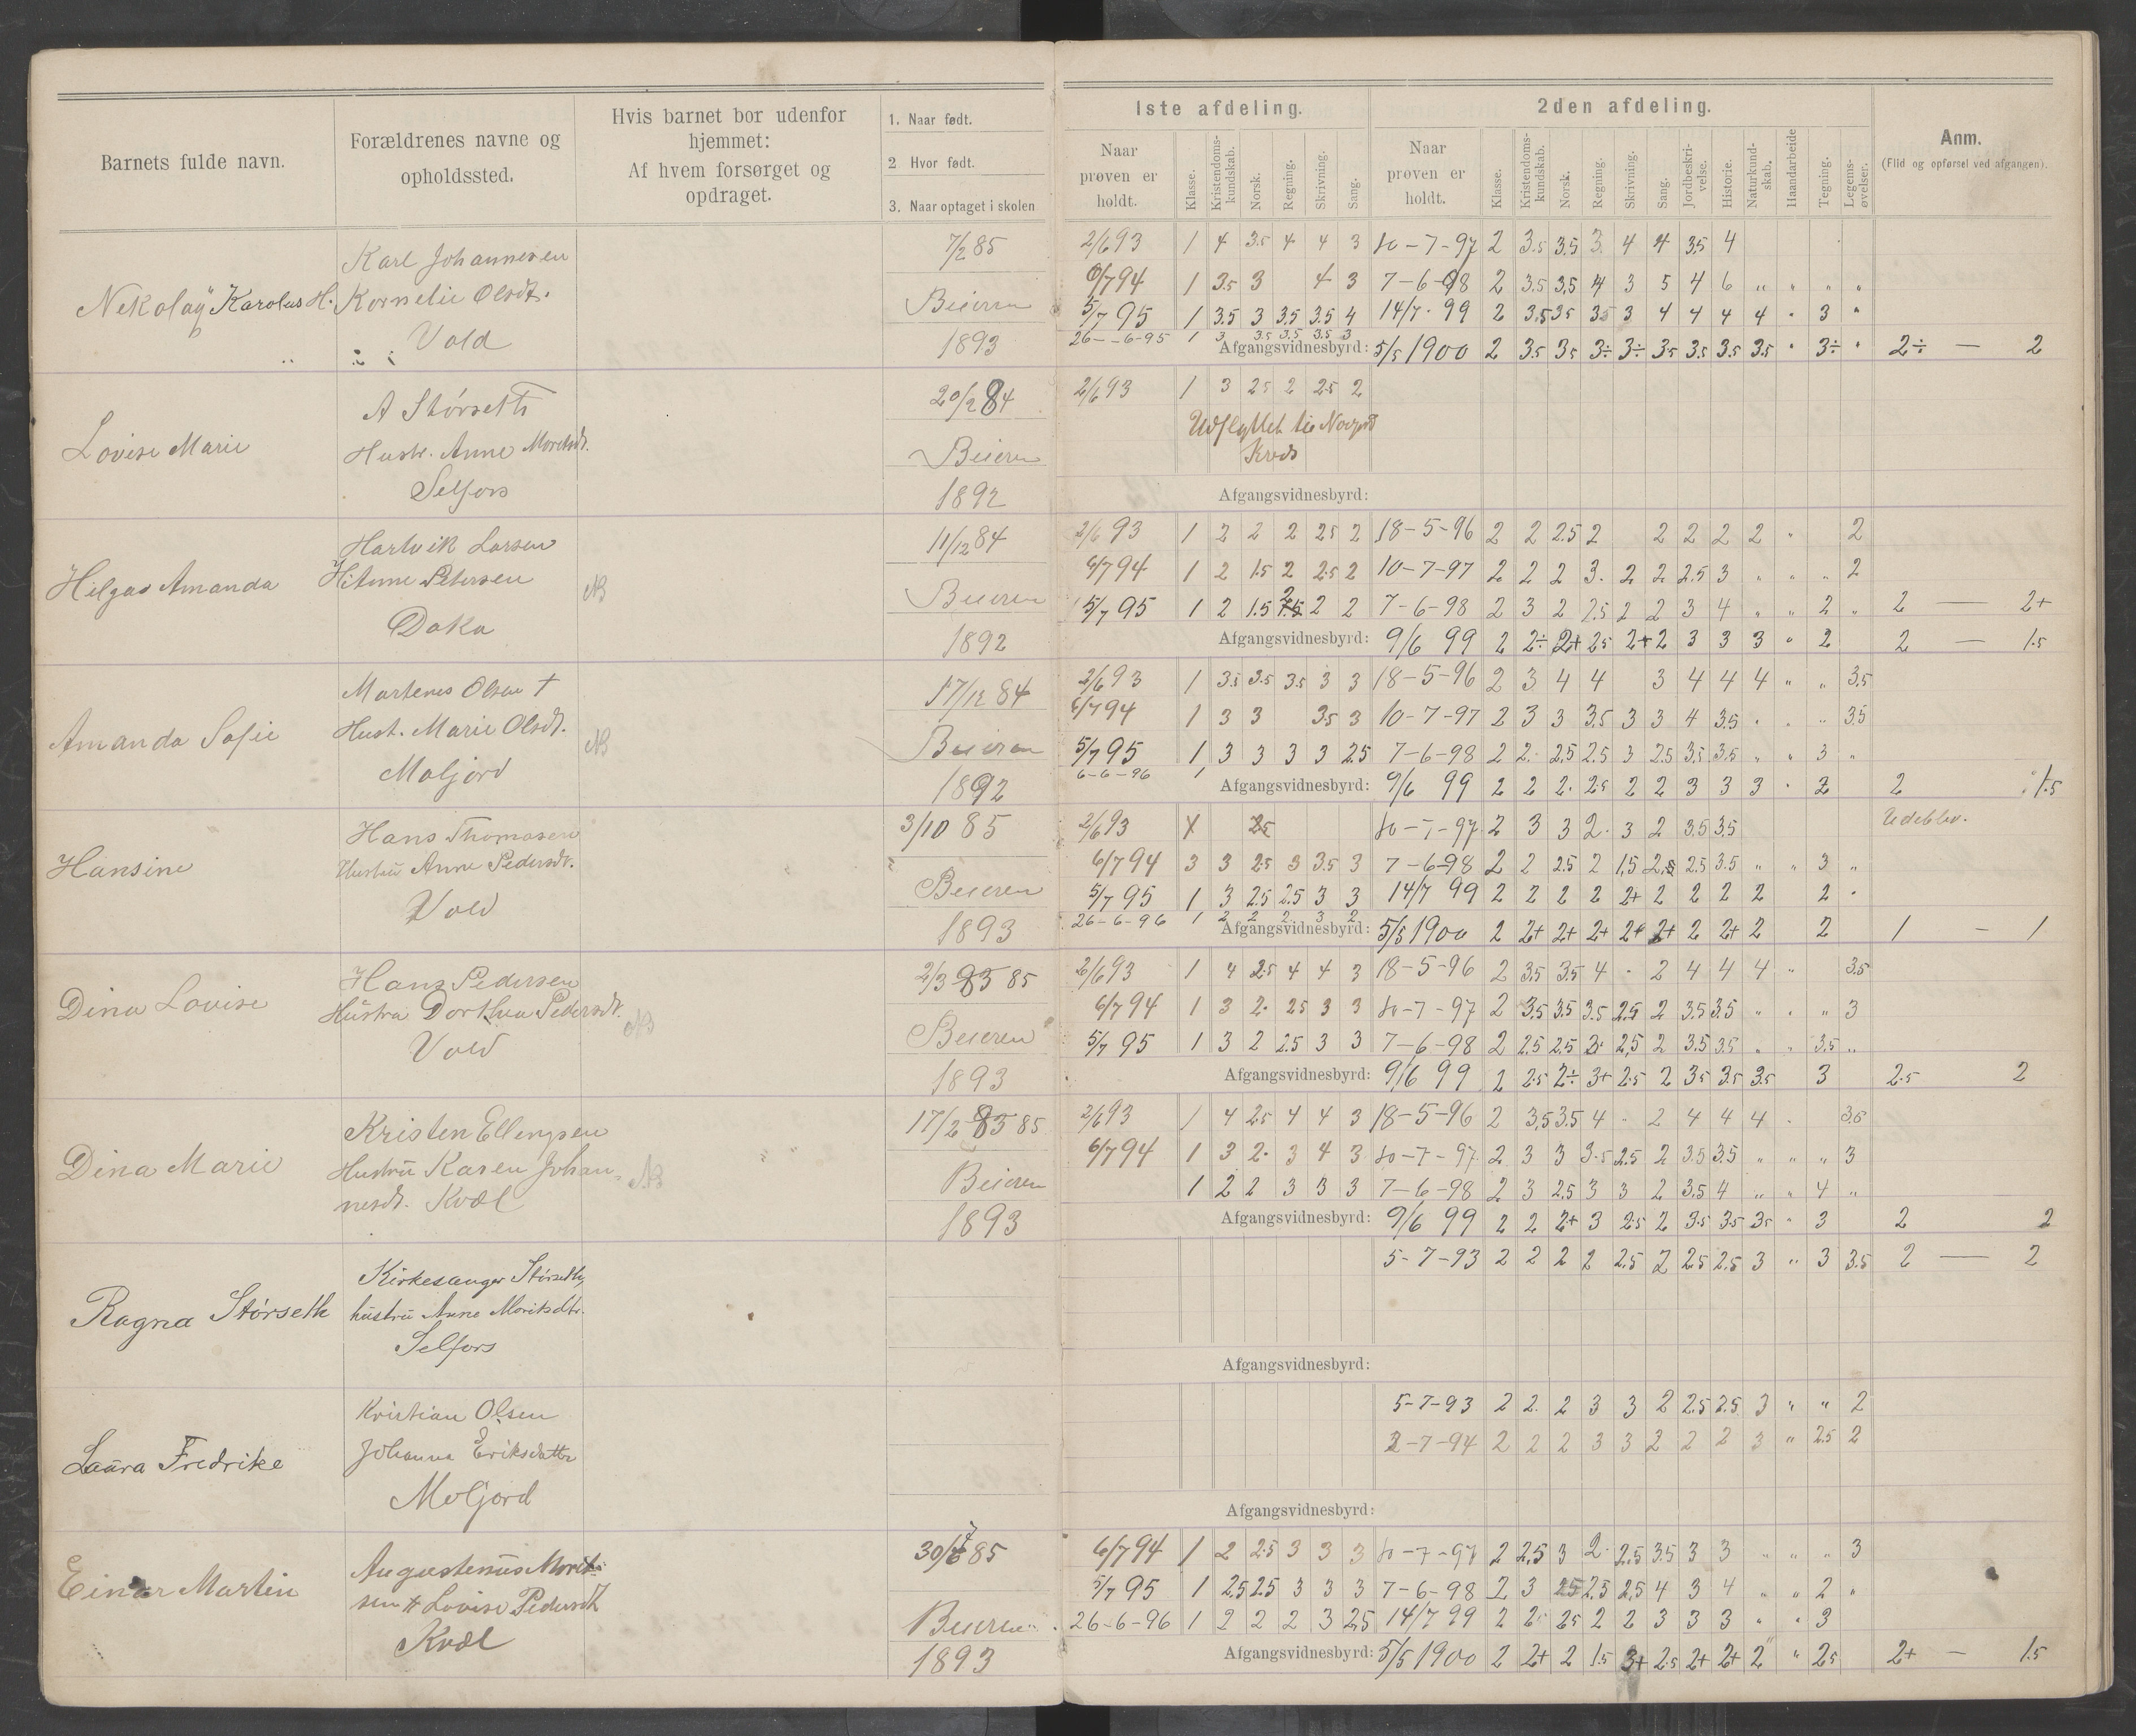 Barnets fulde navn.
Forældrenes navne og opholdssted.
Hvis barnet bor udenfor hjemmet:
Af hvem forsørget og opdraget.
1. Naar født.
2 Hvor født.
3. Naar optaget i skolen
1ste afdeling.
Naar prøven er holdt.
Klasse.
Kristendoms-kundskab.
Norsk.
Regning.
Skrivning.
Sang.
2den afdeling.
Naar prøven er holdt.
Klasse.
Kristendoms-kundskab.
Norsk.
Regning.
Skrivning.
Sang.
Jordbeskri-velse.
Historie.
Naturkund-skab.
Haandarbeide
Tegning.
Legems-øvelser.
Anm.
(Flid og opførsel ved afgangen).
Nekolay Karolus H.
Karl Johannesen
Kornelie Olsdt.
Vold
7/2 85
Beieren
1893
2/6 93 1 4 3.5 4 4 3 10-7-97 2 3.5 3.5 3. 4 4 3.5 4
6/7 94 1 3.5 3 4 3 7-6-98 2 3.5 3.5 4 3 5 4 6 " " " "
5/7 95 1 3.5 3 3.5 3.5 4 14/7. 99 2 3.5 3.5 3.5 3 4 4 4 4 " 3 "
26-6-95 1 3 3.5 3.5 3.5 3
Afgangsvidnesbyrd: 5/5 1900 2 3.5 3.5 3÷ 3÷ 3.5 3.5 3.5 3.5 " 3÷ " 2÷ — 2
Lovise Marie
A Størseth
Hustr. Anne Moretsdt.
Selfors
20/2 84
Beieren
1892
2/6 93 1 3 2.5 2 2.5 2
Udflyttet til
Kreds
Afgangsvidnesbyrd:
Helga Amanda
Hartvik Larsen
H. Anne Petersen
Doka
NB
11/12 84
Beieren
1892
2/6 93 1 2 2 2 2.5 2 18-5-96 2 2 2.5 2 2 2 2 2 " 2
6/7 94 1 2 1.5 2 2.5 2 10-7-97 2 2 2 3. 2 2 2.5 3 " " " 2
5/7 95 1 2 1.5 2 2 2 7-6-98 2 3 2 2.5 2 2 3 4 " " 2 " 2 — 2+
Afgangsvidnesbyrd: 9/6 99 2 2÷ 2+ 2.5 2+ 2 3 3 3 " 2 2 — 1.5
Amanda Sofie
Martenes Olsen †
Hust. Marie Olsdt.
Moljord
NB
17/12 84
Beieren
1892
2/6 93 1 3.5 3.5 3.5 3 3 18-5-96 2 3 4 4 3 4 4 4 " " 3.5
6/7 94 1 3 3 3.5 3 10-7-97 2 3 3 3.5 3 3 4 3.5 " " " 3.5
5/7 95 1 3 3 3 3 2.5 7-6-98 2 2. 2.5 2.5 3 2.5 3.5 3.5 " " 3 "
6-6-96 1
Afgangsvidnesbyrd: 9/6 99 2 2 2. 2.5 2 2 3 3 3 " 2 2 1.5
Hansine
Hans Thomasen
Hustru Anne Pedersdt.
Vold
3/10 85
Beieren
1893
2/6 93 10-7-97 2 3 3 2. 3 2 3.5 3.5 Udeblev.
6/7 94 3 3 2.5 3 3.5 3 7-6-98 2 2 2.5 2 1,5 2,5 2.5 3.5 " " 3 "
5/7 95 1 3 2.5 2.5 3 3 14/7 99 2 2 2 2 2+ 2 2 2 2 2 "
26-6-96 1 2 2 2 3 2
Afgangsvidnesbyrd: 5/5 1900 2 2+ 2+ 2+ 2+ 2+ 2 2+ 2 2 1 - 1
Dina Lovise
Hans Pedersen
Hustru Dorthea Pedersdt.
Vold
NB
2/3 85 85
Beieren
1893
2/6 93 1 4 2.5 4 4 3 18-5-96 2 3.5 3.5 4 " 2 4 4 4 " 3.5
6/7 94 1 3 2. 2.5 3 3 10-7-97 2 3.5 3.5 3.5 2.5 2 3.5 3.5 " " " 3
5/7 95 1 3 2 2.5 3 3 7-6-98 2 2.5 2.5 3. 2,5 2 3.5 3.5 " " 3.5 "
Afgangsvidnesbyrd: 9/6 99 2 2.5 2÷ 3+ 2.5 2 3.5 3.5 3.5 3 2.5 2
Dina Marie
Kristen Ellengsen
Hustru Karen Johan-
nesdt. Kvæl
NB
17/2 83 85
Beieren
1893
2/6 93 1 4 2.5 4 4 3 18-5-96 2 3,5 3.5 4 " 2 4 4 4 " 3.5
6/7 94 1 3 2. 3 4 3 10-7-97 2 3 3 3.5 2.5 2 3.5 3.5 " " " 3
1 2 2 3 3 3 7-6-98 2 3 2.5 3 3 2 3.5 4 " " 4 "
Afgangsvidnesbyrd: 9/6 99 2 2 2+ 3 2.5 2 3.5 3.5 3.5 " 3 2 2
Ragna Størseth
Kirkesanger Størseth,
hustru Anne Moritsdtr.
Selfors
5-7-93 2 2 2 2 2.5 2 2.5 2.5 3 " 3 3.5 2 — 2
Afgangsvidnesbyrd:
Laura Fredrike
Kristian Olsen
Johanna Eriksdatter
Moljord
5-7-93 2 2. 2 3 3 2 2.5 2.5 3 " " 2
2-7-94 2 2 2 3 3 2 2 2 3 " 2.5 2
Afgangsvidnesbyrd:
Einar Martin
Augustenus Morit-
sen H Lovise Pedersdt
Kvæl
30/7 85
Beieren
1893
6/7 94 1 2 2.5 3 3 3 10-7-97 2 2,5 3 2. 2,5 3.5 3 3 " " " 3
5/7 95 1 2.5 2.5 3 3 3 7-6-98 2 3 2.5 2.5 2,5 4 3 4 " " 2 "
26-6-96 1 2 2 2 3 2,5 14/7 99 2 2. 2.5 2 2 3 3 3 " " 3
Afgangsvidnesbyrd: 5/5 1900 2 2+ 2 1.5 3+ 2.5 2+ 2+ 2 " 2.5 2+ — 1.5